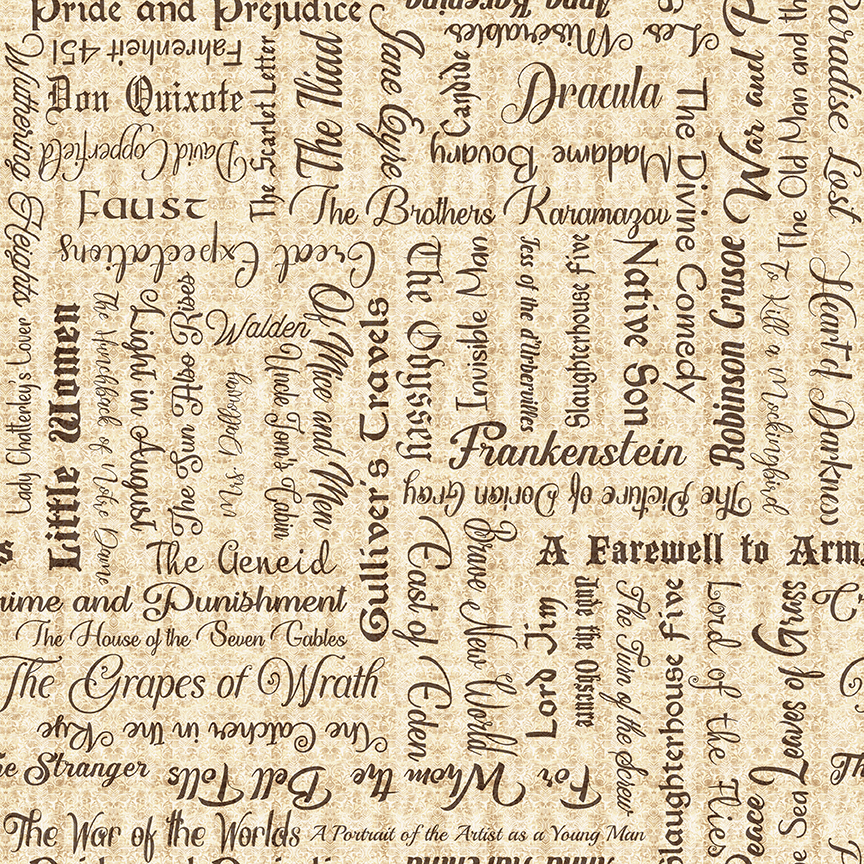 Pride and Prejudice
Anna Karenina
Les Misérables
Paradise Lost
Fahrenheit 451
Wuthering Heights
Don Quixote
The Scarlet Letter
The Iliad
Jane Eyre
Candide
Dracula
The Divine Comedy
War and P
The Old Man and th
David Copperfield
Madame Bovary
Faust
The Brothers Karamazov
Great Expectations
The Odyssey
Invisible Man
Tess of the d'Urbervilles
Slaughterhouse Five
Native Son
Robinson Crusoe
To Kill a Mockingbird
Heart of Darkness
Lady Chatterley's Lover
Little Women
The Hunchback of Notre Dame
Light in August
The Sun Also Rises
Walden
Mrs. Dalloway
Uncle Tom's Cabin
Of Mice and Men
Gulliver's Travels
Frankenstein
The Picture of Dorian Gray
s
The Aeneid
East of Eden
Brave New World
A Farewell to Arm
rime and Punishment
Lord Jim
Jude the Obscure
The Turn of the Screw
Slaughterhouse Five
Lord of the Flies
Leaves of Grass
C
The House of the Seven Gables
The Grapes of Wrath
The Catcher in the Rye
he Stranger
For Whom the Bell Tolls
Peace
e Sea
Th
The War of the Worlds
A Portrait of the Artist as a Young Man
Pride and Prejudice
Anna Karenina